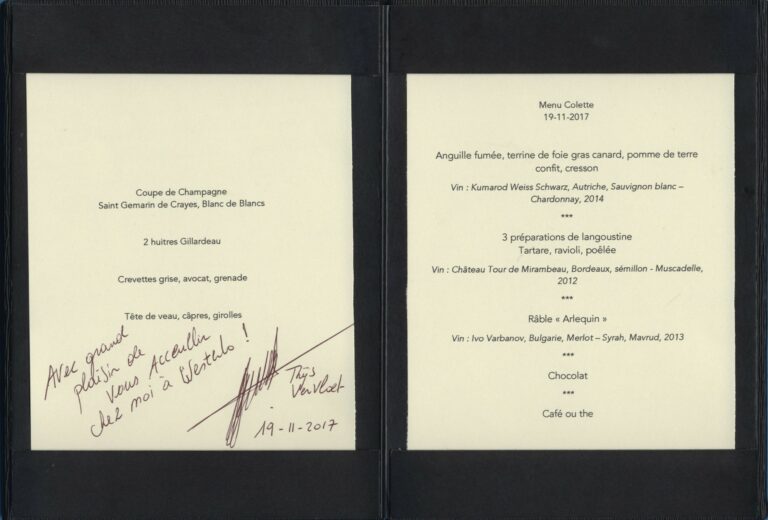 Coupe de Champagne
Saint Gemarin de Crayes, Blanc de Blancs
2 huitres Gillardeau
Crevettes grise, avocat, grenade
Tête de veau, câpres, girolles
Avec grand
plaisir de
vous Acceullir
chez moi à Westerlo !
Thijs
Vervloet
19-11-2017
Menu Colette
19-11-2017
Anguille fumée, terrine de foie gras canard, pomme de terre
confit, cresson
Vin : Kumarod Weiss Schwarz, Autriche, Sauvignon blanc –
Chardonnay, 2014
***
3 préparations de langoustine
Tartare, ravioli, poêlée
Vin : Château Tour de Mirambeau, Bordeaux, sémillon - Muscadelle,
2012
***
Râble « Arlequin »
Vin : Ivo Varbanov, Bulgarie, Merlot – Syrah, Mavrud, 2013
***
Chocolat
***
Café ou the